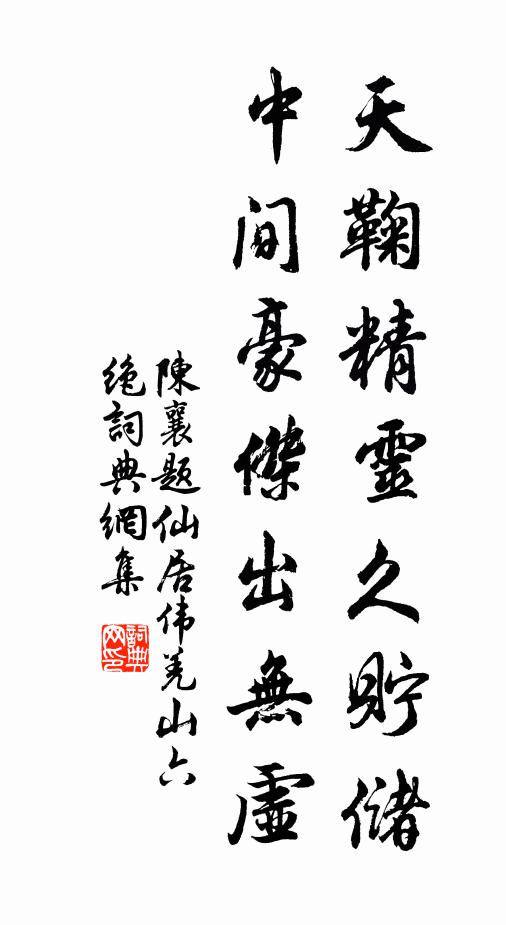 天鞠精靈久貯儲
中间豪傑出無虛
陳襄题仙居伟羌山六
绝詞典網集
詞典网印